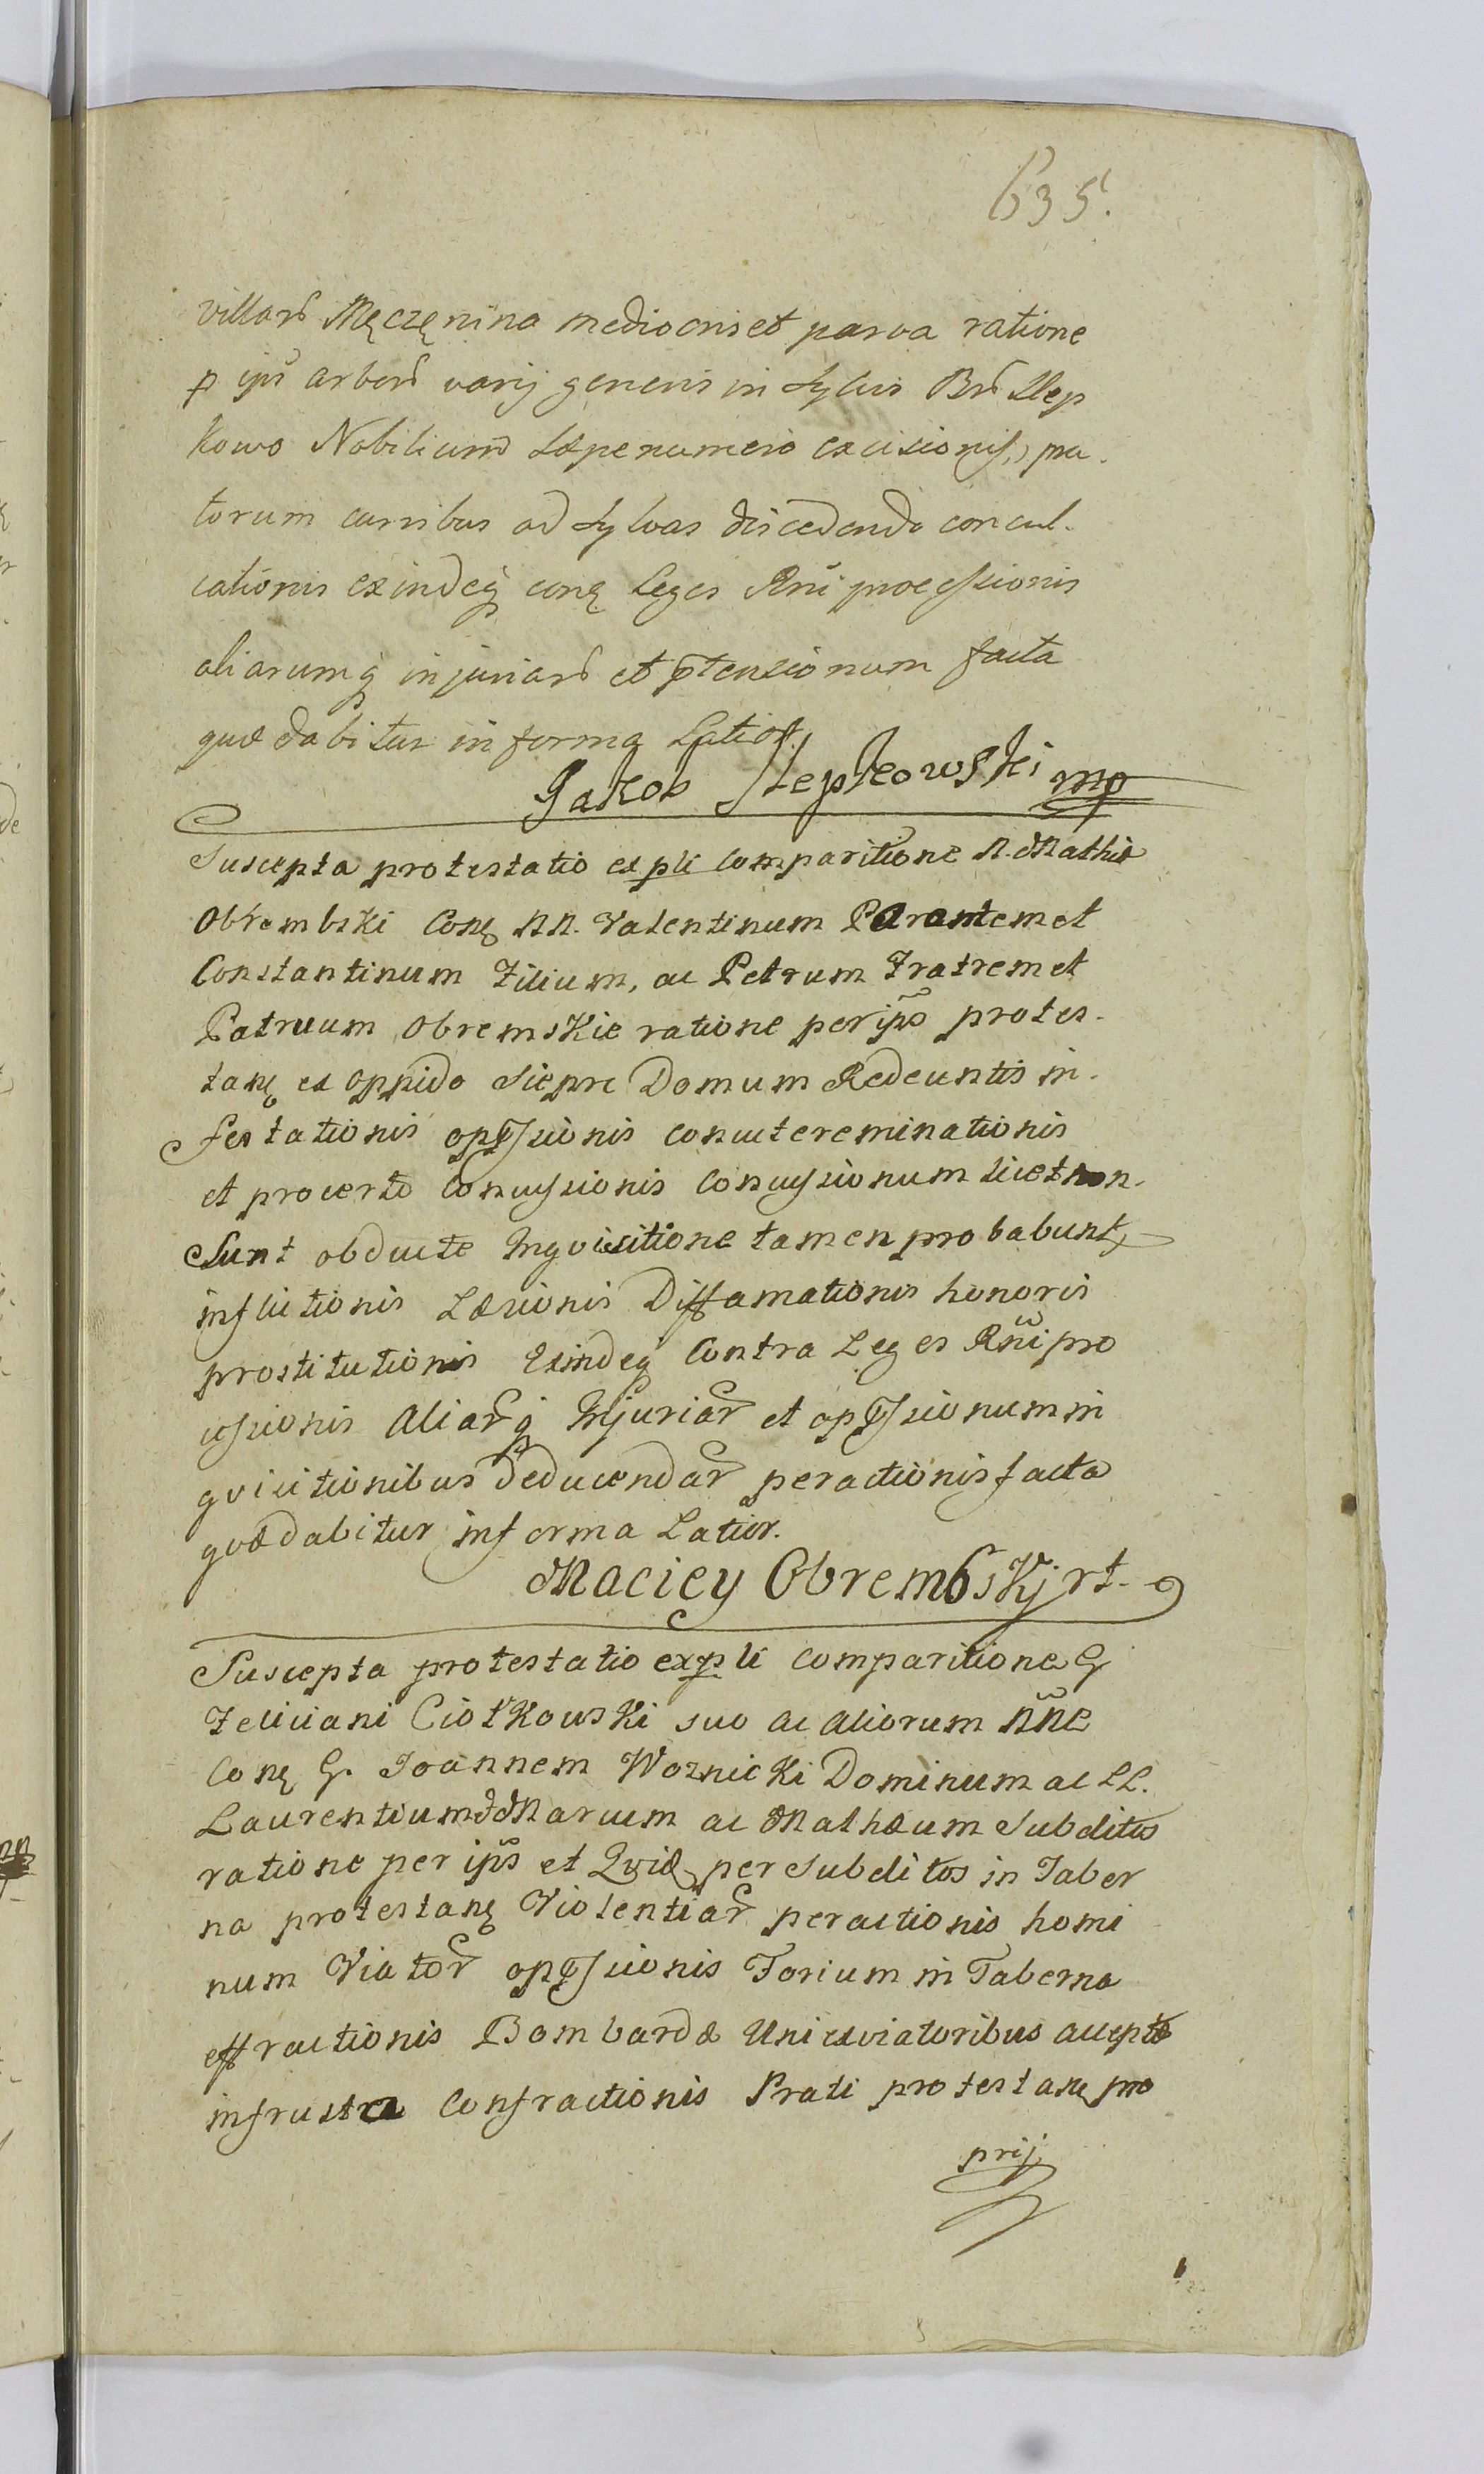 635.
villarũ Męczęnina mediocris et parva ratione
p ips̃ arborũ varij generis in Sylvis Bnũ Slep
kowo Nobilium Sæpenumero excisionis, pra.
torum curribus ad Sylvas discedendo concul.
cationis exindeq conę Leges Rñi processionis
aliarumq injuriarũ et ptensionum facta
quæ dabitur in forma Latior.
Jakob Slepkowski mp
Suscepta protestatio ex pli Comparitione N. Mathiæ
Obrembski Conę NN. Valentinum Parantem et
Constantinum Filium, ac Petrum Fratrem et
Patruum Obremskie ratione per ips̃ protes-
tanę ex oppido Siepre Domum Redeuntis in-
festationis opp̃ssionis concutereminationis
et procerto Concussionis Concussionum licet non.
Sunt obducte Inqvisitione tamen probabunt,
inflictionis Læsionis Diffamationis honoris
prostitutionis Exindeq Contra Leges Rñi pro
cessionis Aliarq̃ Injuriar̃ et opp̃ssionum in
qvisitionibus deducendar̃ peractionis facta
qvæ dabitur in forma Latior.
Maciey Obrembskj rt.
Suscepta protestatio ex pli Comparitione G
Feliciani Ciołkowski suo ac aliorum ññe
Conę G. Joannem Woznicki Dominum ac LL.
Laurentium Marcum ac Mathæum Subditos
ratione per ips̃ et Qvid per Subditos in Taber
na protestanę Violentiar̃ peractionis homi
num Viator̃ opp̃ssionis Forium in Taberna
effractionis Bombardæ Uni ex viatoribus acceptæ
in frusta Confractionis Prati protestanę pro
prij